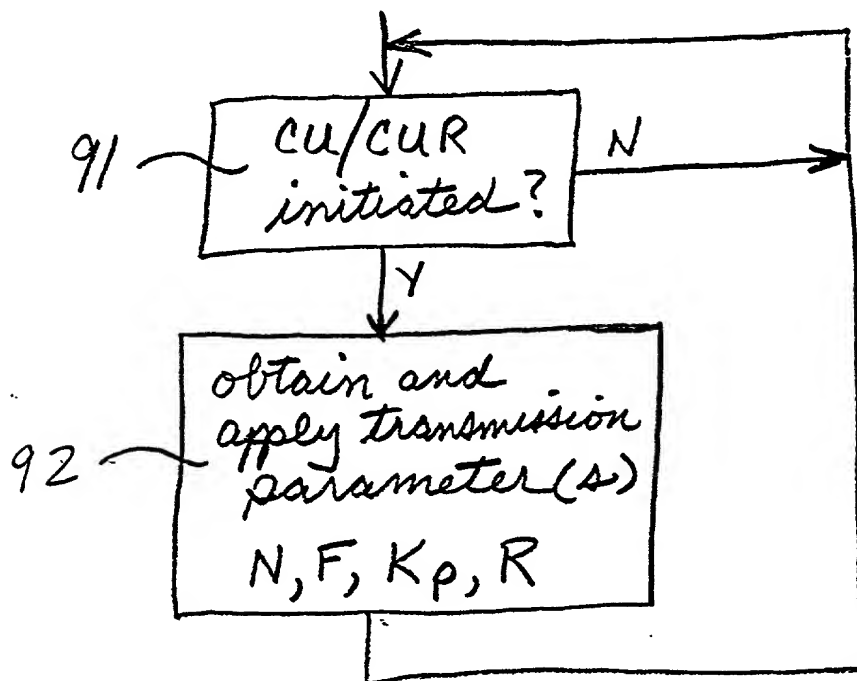 91
CU/CUR
initiated?
N
Y
92
obtain and
apply transmission
parameter(s)
N, F, Kp, R